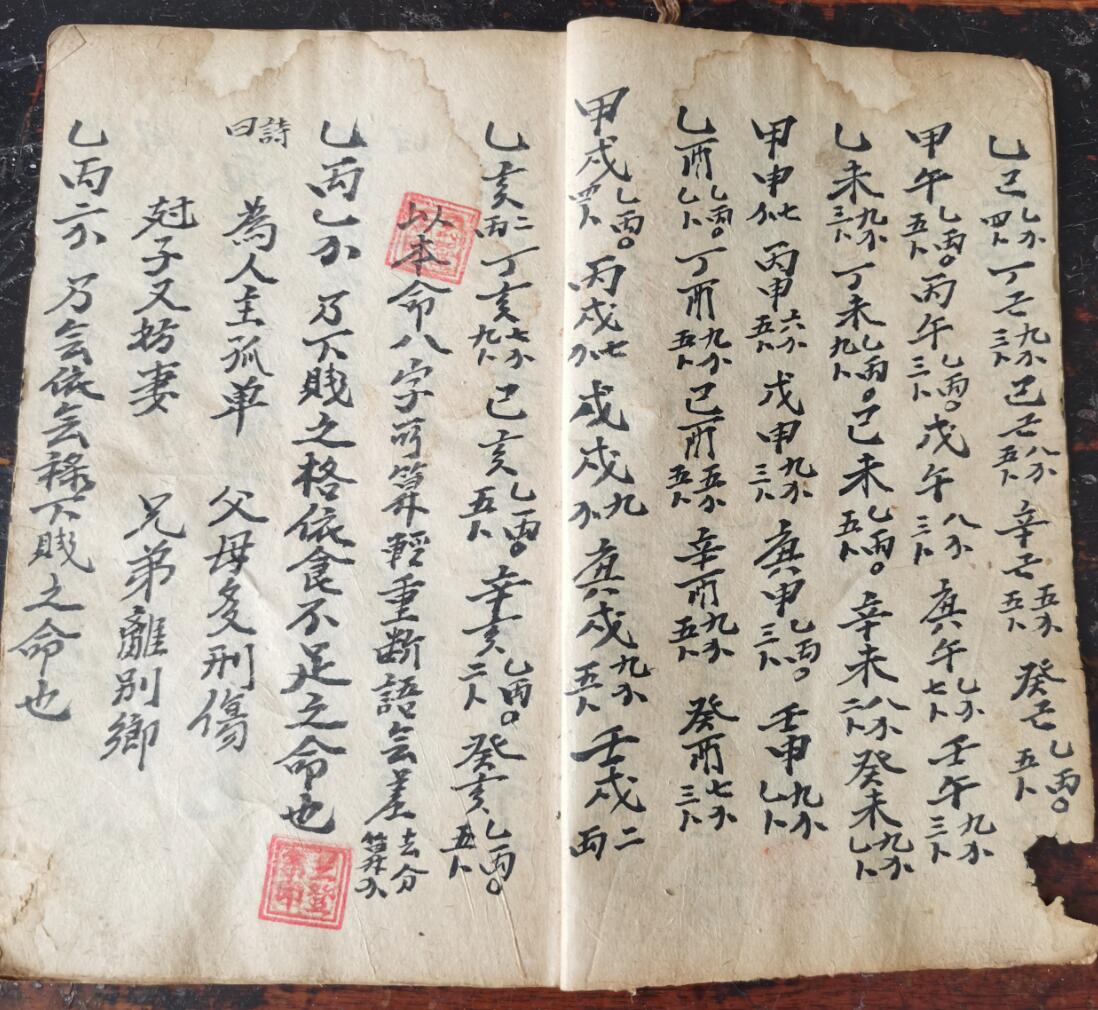 乙巳乙分四卜丁巳九分三卜己巳八分五卜辛巳五分五卜癸巳乙両〇五卜
甲午乙両〇五卜丙午乙両〇三卜戊午八分三卜庚午乙分七卜壬午九分三卜
乙未九分三卜丁未乙両〇九卜己未乙両〇五卜辛未八分二卜癸未九分乙卜
甲申七分丙申六分五卜戊申九分三卜庚申乙両〇三卜壬申九分乙卜
乙酉乙両〇乙卜丁酉九分五卜己酉五分五卜辛酉九分五卜癸酉七分三卜
甲戌乙両〇四卜丙戌七分戊戌九分庚戌九分五卜壬戌二両
乙亥二両丁亥七分九卜己亥乙両〇五卜辛亥乙両〇二卜癸亥乙両〇五卜
以本命八字可算輕重斷語无差去分算分
乙両乙分乃下賤之格依食不足之命也
詩曰為人主孤單 父母多刑傷
尅子又妨妻 兄弟離別鄉
乙両六分乃无依无祿下賤之命也